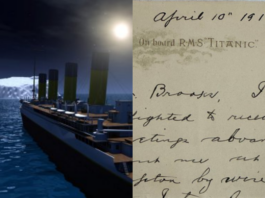 April 10th 191
On board R.M.S. "TITANIC"
Brooks, I
lighted to rece
tings advan
ut me at
pton by wire